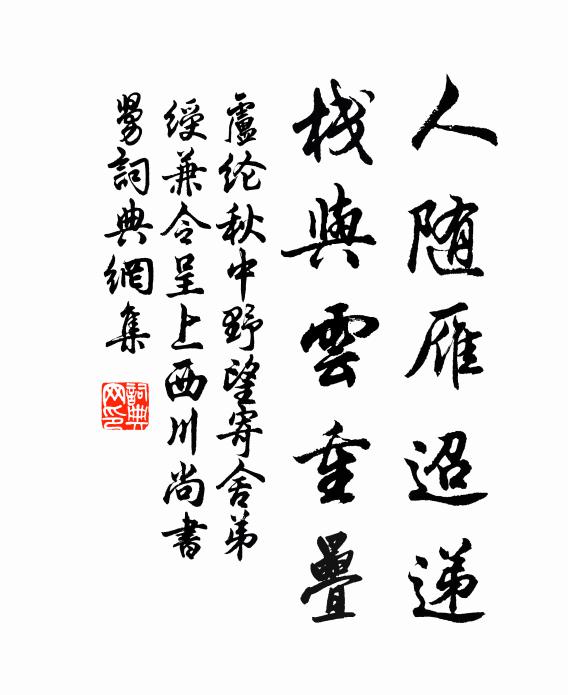 人随雁迢递
栈與雲重疊
盧纶秋中野望寄舍弟
綬兼令呈上西川尚書
舅詞典網集
詞典网印